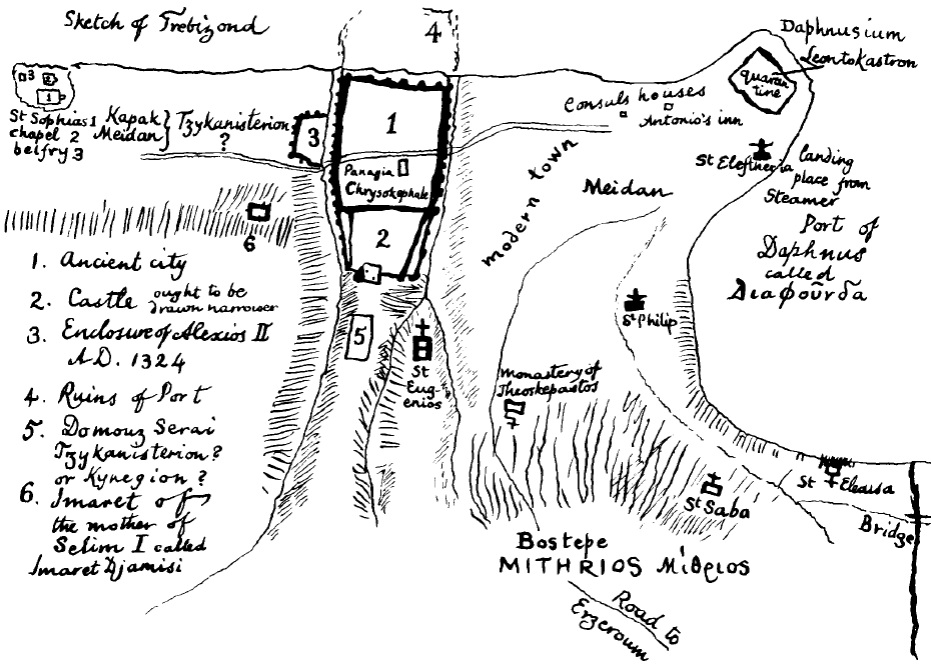 Sketch of Trebizond
4
Daphnusium
Leontokastron
quaran
tine
3 2
1
St Sophias 1
chapel 2
belfry 3
Kapak
Meidan
Tzykanisterion
?
3
1
Panagia
Chrysokephale
2
Consuls houses
Antonio's inn
modern town
Meidan
St Eleftheria
landing
place from
Steamer
Port of
Daphnus
called
Διαφοῦνδα
6
5
St
Eug-
enios
St Philip
monastery of
Theoskepastos
St Saba
St Eleassa
Bridge
Bostepe
MITHRIOS Μίθριος
Road to
Erzeroum
1. Ancient city
2. Castle ought to be
drawn narrower
3. Enclosure of Alexios II
A.D. 1324
4. Ruins of Port
5. Domouz Serai
Tzykanisterion?
or Kynegion?
6. Imaret of
the mother of
Selim I called
Imaret Djamisi